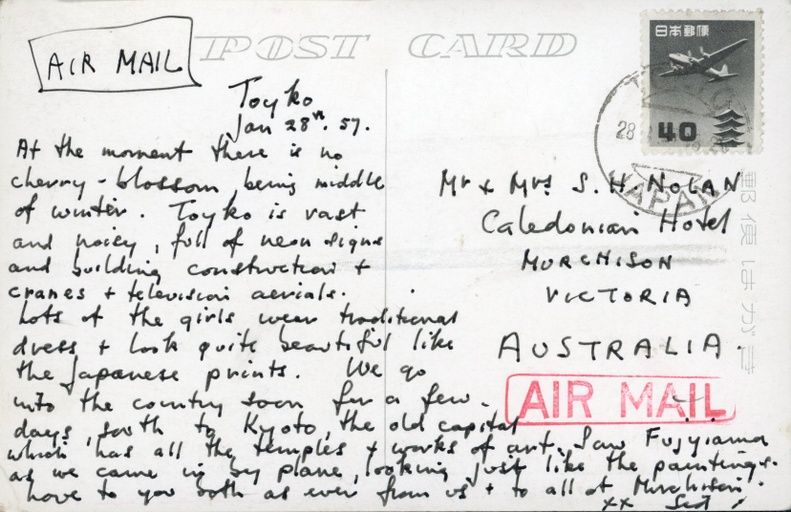 AIR MAIL
POST CARD
日本郵便
40
28
JAPAN
Toyko
Jan 28th. 57.
At the moment there is no
cherry-blossom, being middle
of winter. Toyko is vast
and noisy, full of neon signs
and building construction +
cranes + television aerials.
Lots of the girls wear traditional
dress + look quite beautiful like
the Japanese prints. We go
into the country soon for a few
days, south to Kyoto, the old capital
which has all the temples + works of art. Saw Fujyiama
as we came in by plane, looking just like the paintings.
Love to you both as ever from us + to all at Murchison.
xx
Mr + Mrs S. H. NOLAN
Caledonian Hotel
MURCHISON
VICTORIA
AUSTRALIA
AIR MAIL
郵便はがき